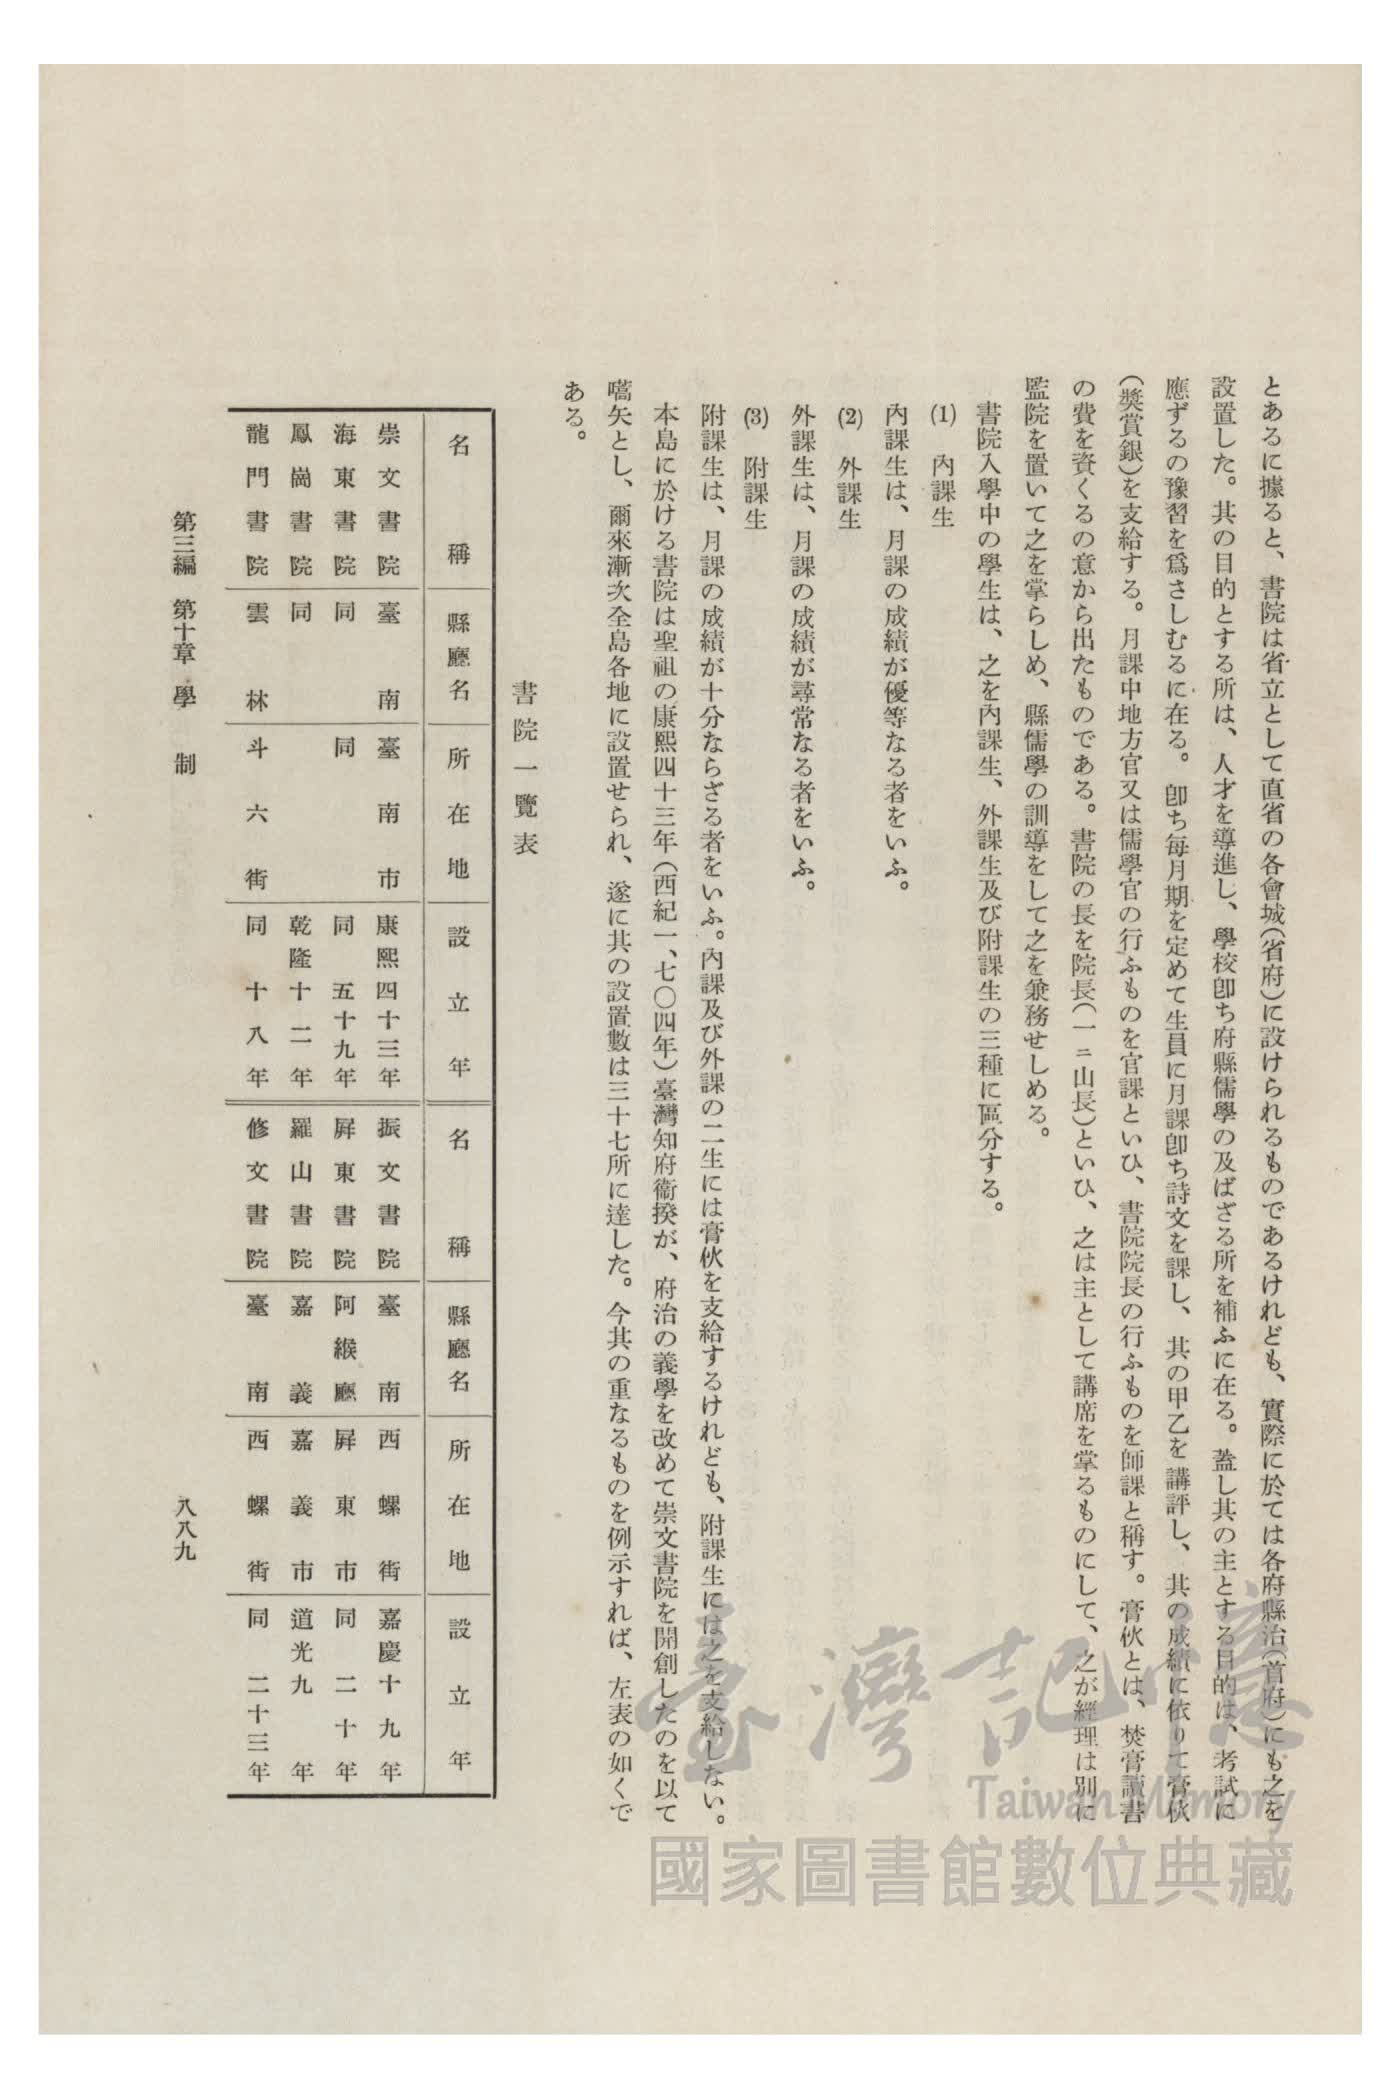 とあるに據ると、書院は省立として直省の各會城(省府)に設けられるものであるけれども、實際に於ては各府縣治(首府)にも之を
設置した。其の目的とする所は、人才を導進し、學校卽ち府縣儒學の及ばざる所を補ふに在る。蓋し其の主とする目的は、考試に
應ずるの豫習を爲さしむるに在る。卽ち每月期を定めて生員に月課卽ち詩文を課し、其の甲乙を講評し、其の成績に依りて膏伙
(奬賞銀)を支給する。月課中地方官又は儒學官の行ふものを官課といひ、書院院長の行ふものを師課と稱す。膏伙とは、焚膏讀書
の費を資くるの意から出たものである。書院の長を院長(一ニ山長)といひ、之は主として講席を掌るものにして、之が經理は別に
監院を置いて之を掌らしめ、縣儒學の訓導をして之を兼務せしめる。
書院入學中の學生は、之を內課生、外課生及び附課生の三種に區分する。
(1) 內課生
內課生は、月課の成績が優等なる者をいふ。
(2) 外課生
外課生は、月課の成績が尋常なる者をいふ。
(3) 附課生
附課生は、月課の成績が十分ならざる者をいふ。內課及び外課の二生には膏伙を支給するけれども、附課生には之を支給しない。
本島に於ける書院は聖祖の康熙四十三年(西紀一、七〇四年)臺灣知府衞揆が、府治の義學を改めて崇文書院を開創したのを以て
嚆矢とし、爾來漸次全島各地に設置せられ、遂に其の設置數は三十七所に達した。今其の重なるものを例示すれば、左表の如くで
ある。
書院一覽表
名稱 縣廳名 所在地 設立年 名稱 縣廳名 所在地 設立年
崇文書院 臺南 臺南市 康熙四十三年 振文書院 臺南 西螺街 嘉慶十九年
海東書院 同 同 同五十九年 屛東書院 阿緱廳 屛東市 同二十年
鳳崗書院 同 乾隆十二年 羅山書院 嘉義 嘉義市 道光九年
龍門書院 雲林 斗六街 同十八年 修文書院 臺南 西螺街 同二十三年
第三編 第十章 學制
八八九
臺灣記憶
Taiwan Memory
國家圖書館數位典藏